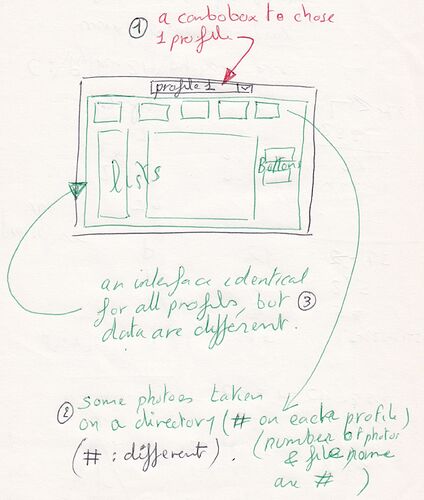 ① a combobox to chose
1 profile
profile 1
lists
Buttons
an interface identical
for all profils, but ③
data are différent.
② Some photos taken
on a directory (# on each profile)
(# : different). (number of photos
& file name
are # )